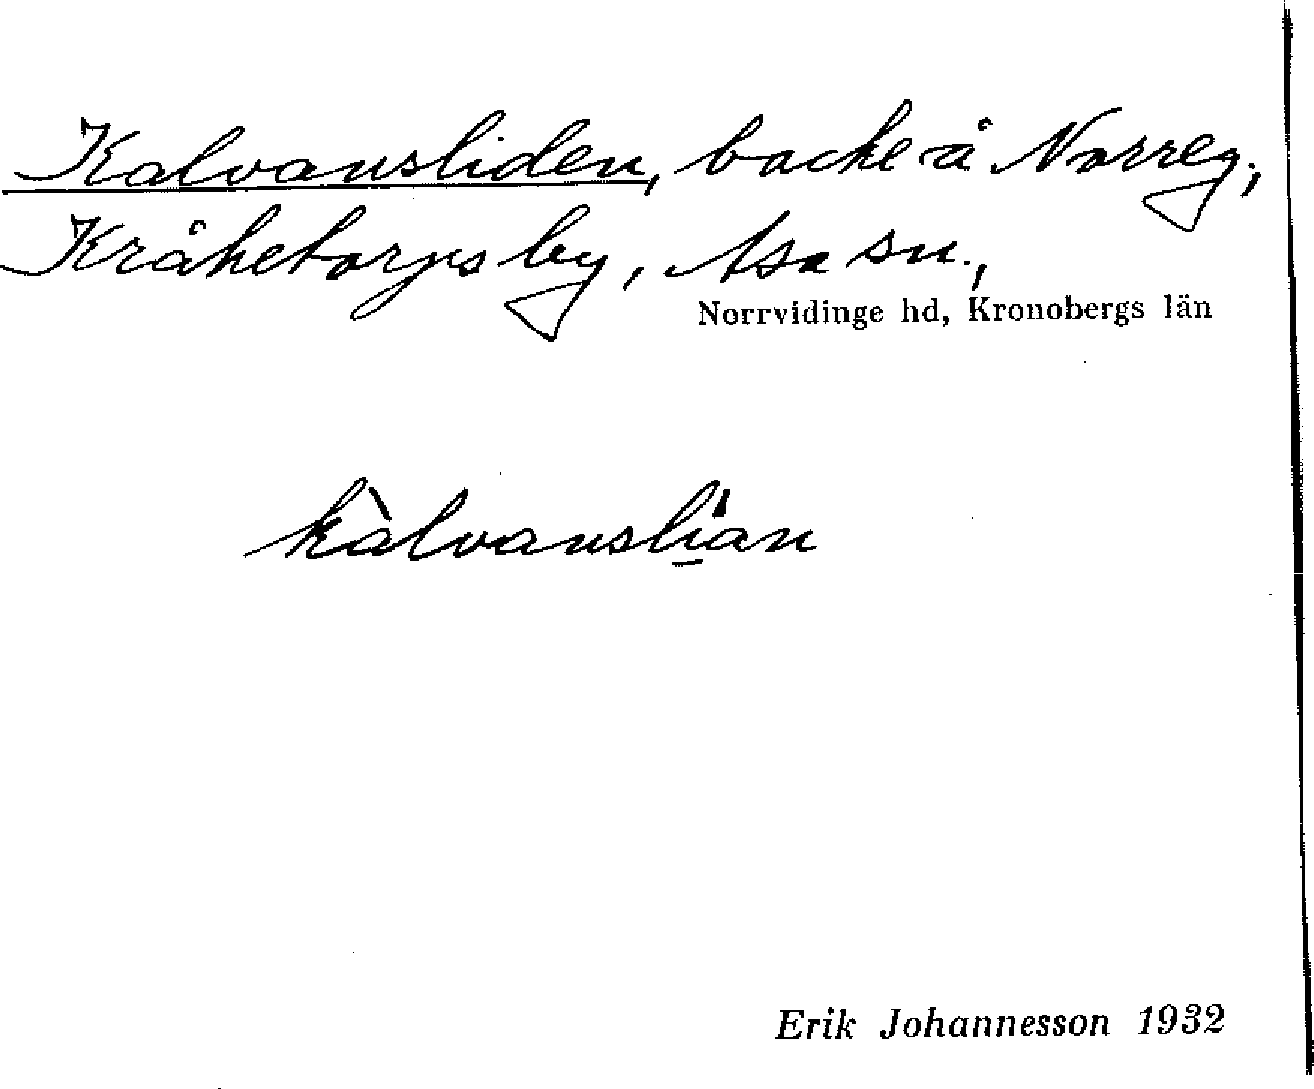 Kalvansliden, backe å Norreg.,
Kråketorps by, Asa sn.,
Norrvidinge hd, Kronobergs län
kàlvanslían
Erik Johannesson 1932